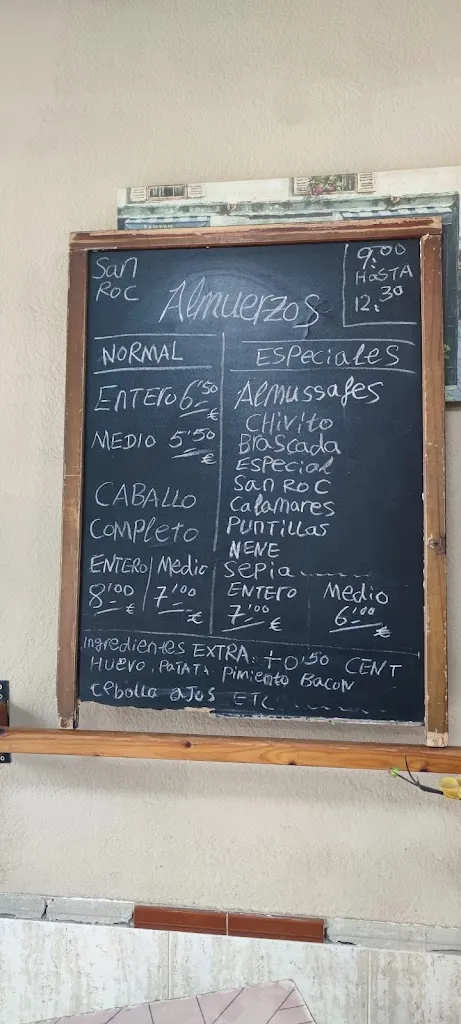 San
Roc
Almuerzos
9:00
HASTA
12:30
NORMAL
ENTERO 6'50
€
MEDIO 5'50
€
CABALLO
COMPLETO
ENTERO Medio
8'00 € 7'00 €
ESPECIALES
Almussafes
CHivito
BRascada
ESPecial
San Roc
Calamares
Puntillas
NENE
Sepia
ENTERO Medio
7'00 € 6'00 €
Ingredientes EXTRA: +0'50 CENT
HUEVO, PATATA Pimiento BACON
Cebolla aJos ETC